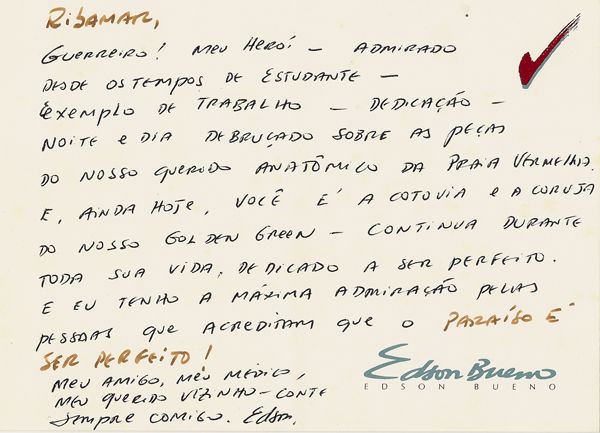 Ribamar,
GUERREIRO! MEU HERÓI - ADMIRADO
DESDE OS TEMPOS DE ESTUDANTE -
EXEMPLO DE TRABALHO - DEDICAÇÃO -
NOITE E DIA DEBRUÇADO SOBRE AS PEÇAS
DO NOSSO QUERIDO ANATÔMICO DA PRAIA VERMELHA.
E, AINDA HOJE, VOCÊ É A COTOVIA E A CORUJA
DO NOSSO GOLDEN GREEN - CONTINUA DURANTE
TODA SUA VIDA, DEDICADO A SER PERFEITO.
E EU TENHO A MÁXIMA ADMIRAÇÃO PELAS
PESSOAS QUE ACREDITAM QUE O PARAÍSO É
SER PERFEITO!
MEU AMIGO, MEU MÉDICO,
MEU QUERIDO VIZINHO - CONTE
SEMPRE COMIGO. Edson.
Edson Bueno
EDSON BUENO